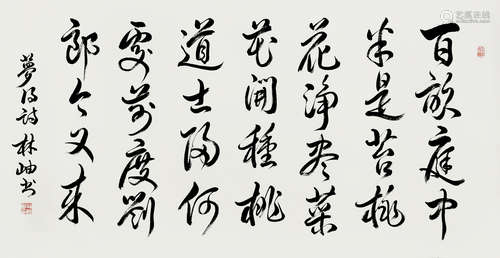 百畝庭中
半是苔桃
花淨尽菜
花開種桃
道士歸何
處前度劉
郎今又来
夢得詩 林岫书